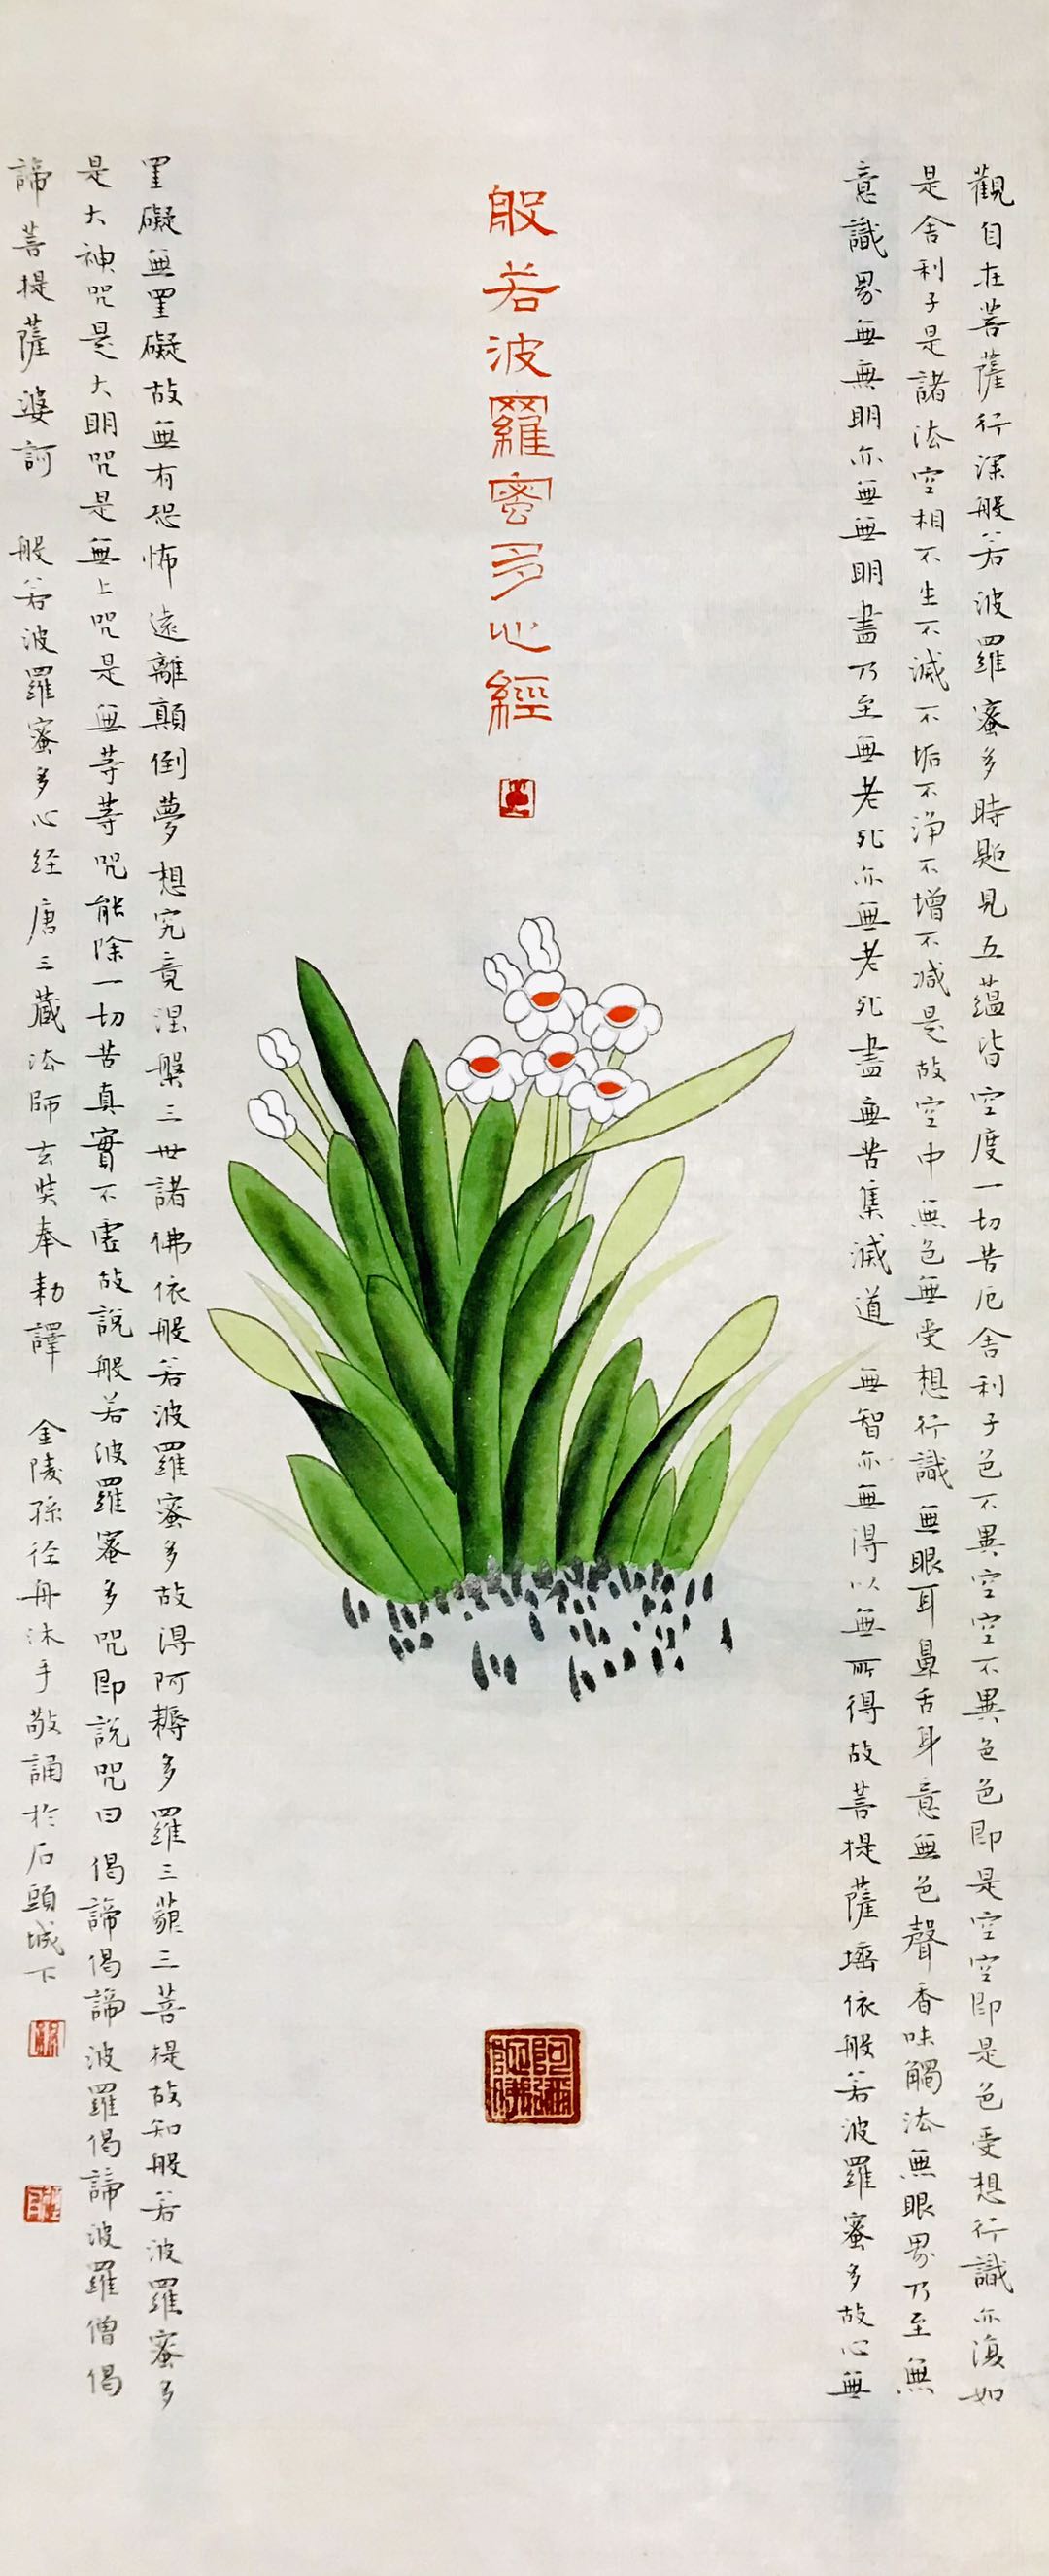 觀自在菩薩行深般若波羅蜜多時照見五蘊皆空度一切苦厄舍利子色不異空空不異色色即是空空即是色受想行識亦復如
是舍利子是諸法空相不生不滅不垢不淨不增不減是故空中無色無受想行識無眼耳鼻舌身意無色聲香味觸法無眼界乃至無
意識界無無明亦無無明盡乃至無老死亦無老死盡無苦集滅道無智亦無得以無所得故菩提薩埵依般若波羅蜜多故心無
般若波羅蜜多心經
罣礙無罣礙故無有恐怖遠離顛倒夢想究竟涅槃三世諸佛依般若波羅蜜多故得阿耨多羅三藐三菩提故知般若波羅蜜多
是大神咒是大明咒是無上咒是無等等咒能除一切苦真實不虛故說般若波羅蜜多咒即說咒曰偈諦偈諦波羅偈諦波羅僧偈
諦菩提薩婆訶 般若波羅蜜多心经唐三藏法師玄奘奉勅譯 金陵孫径舟沐手敬誦於石頭城下